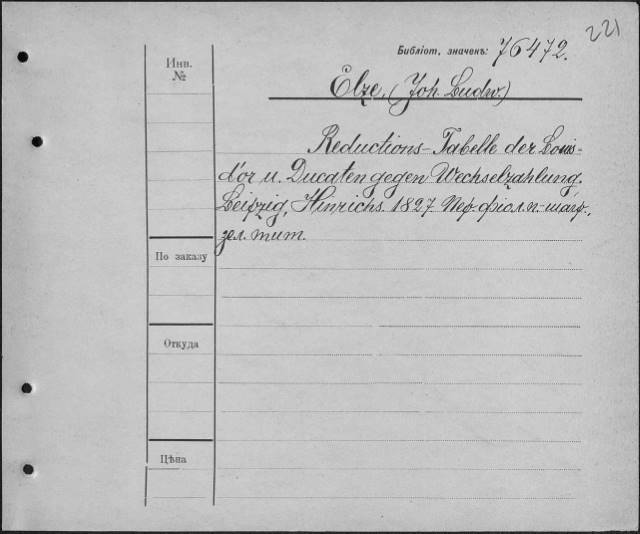 221
Библіот. значенъ: 76472.
Инв.
№
Elze, (Joh. Ludw.)
Reductions-Tabelle der Louis-
d'or u. Ducaten gegen Wechselzahlung.
Leipzig, Hinrichs. 1827. Пер. фіол. п.-шагр.,
зол. тит.
По заказу
Откуда
Цѣна